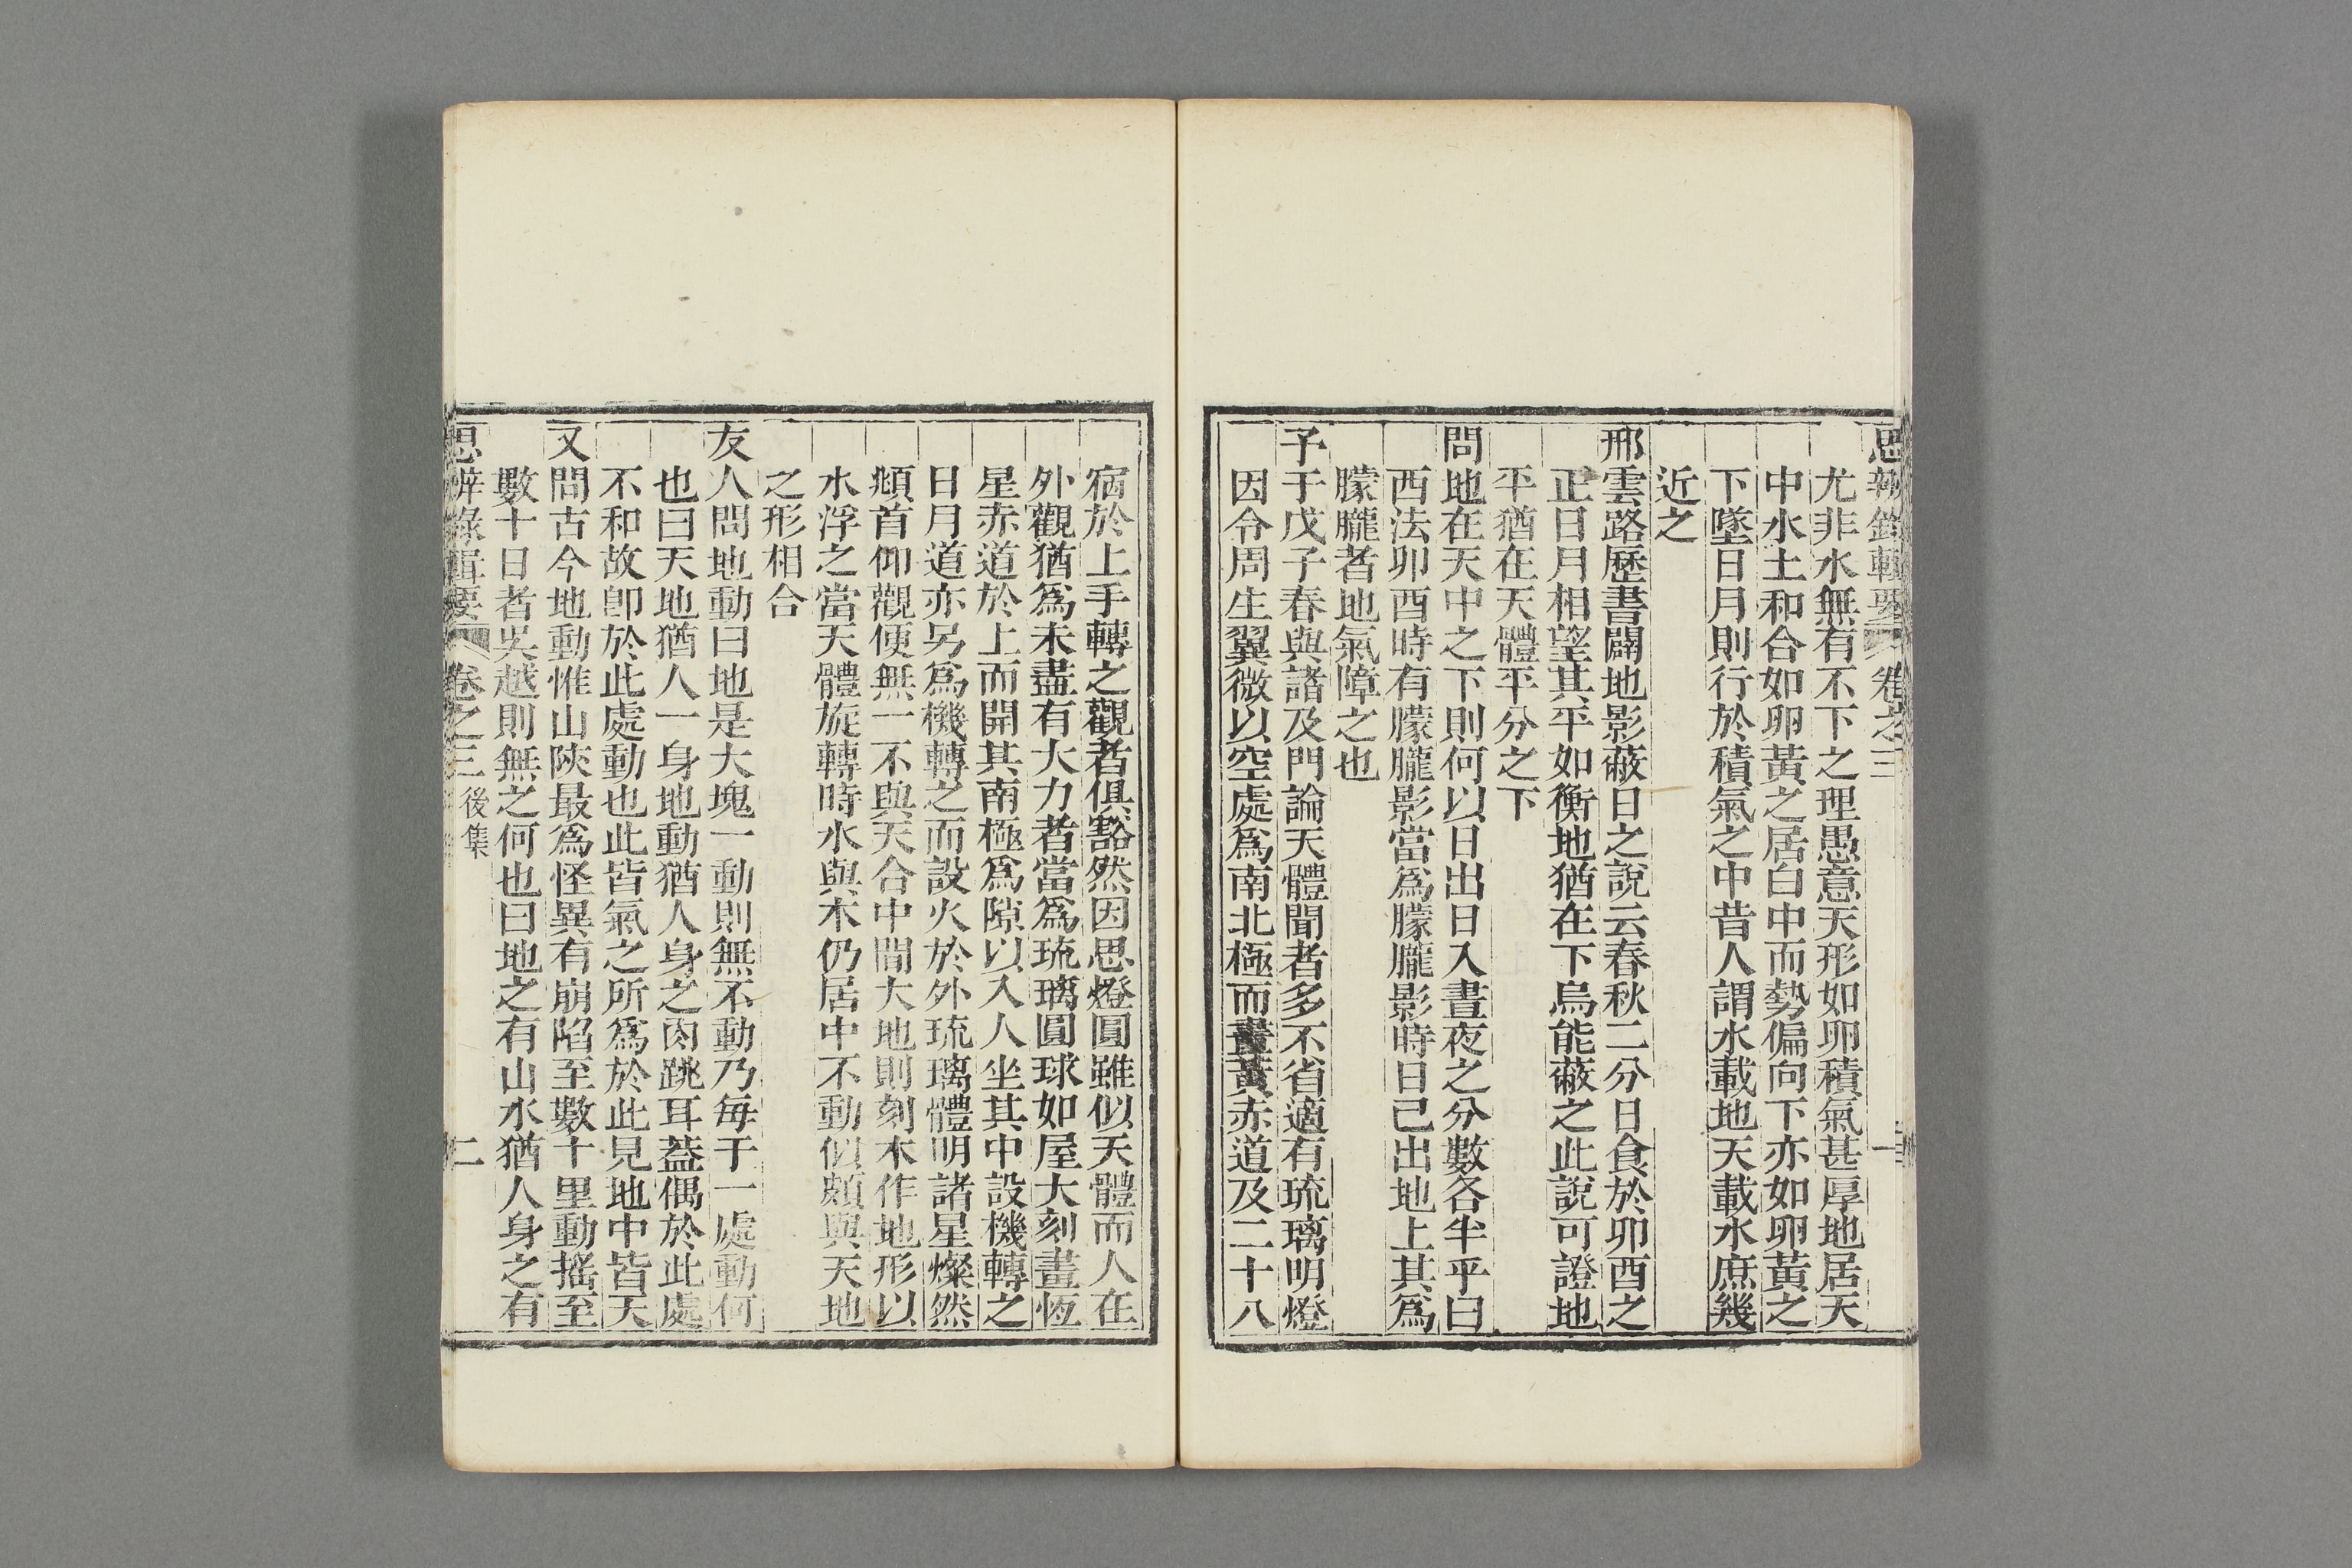 思辨錄輯要 卷之三 一
尤非水無有不下之理愚意天形如卵積氣甚厚地居天
中水土和合如卵黃之居白中而勢偏向下亦如卵黃之
下墜日月則行於積氣之中昔人謂水載地天載水庶幾
近之
邢雲路歷書闢地影蔽日之說云春秋二分日食於卯酉之
正日月相望其平如衡地猶在下烏能蔽之此說可證地
平猶在天體平分之下
問地在天中之下則何以日出日入晝夜之分數各半乎曰
西法卯酉時有朦朧影當爲朦朧影時日已出地上其爲
朦朧者地氣障之也
予于戊子春與諸及門論天體聞者多不省適有琉璃明燈
因令周生翼微以空處爲南北極而畫黃赤道及二十八
宿於上手轉之觀者俱豁然因思燈圓雖似天體而人在
外觀猶爲未盡有大力者當爲琉璃圓球如屋大刻畫恆
星赤道於上而開其南極爲隙以入人坐其中設機轉之
日月道亦另爲機轉之而設火於外琉璃體明諸星燦然
頫首仰觀便無一不與天合中間大地則刻木作地形以
水浮之當天體旋轉時水與木仍居中不動似頗與天地
之形相合
友人問地動曰地是大塊一動則無不動乃每于一處動何
也曰天地猶人一身地動猶人身之肉跳耳蓋偶於此處
不和故卽於此處動也此皆氣之所爲於此見地中皆天
又問古今地動惟山陝最爲怪異有崩陷至數十里動搖至
數十日者吳越則無之何也曰地之有山水猶人身之有
思辨錄輯要 卷之三 後集 二